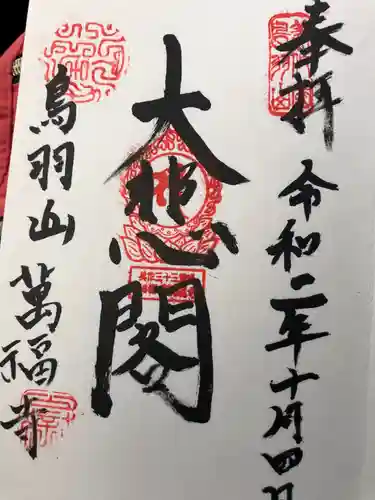 奉拝
令和二年十月四日
大悲閣
鳥羽山
萬福寺